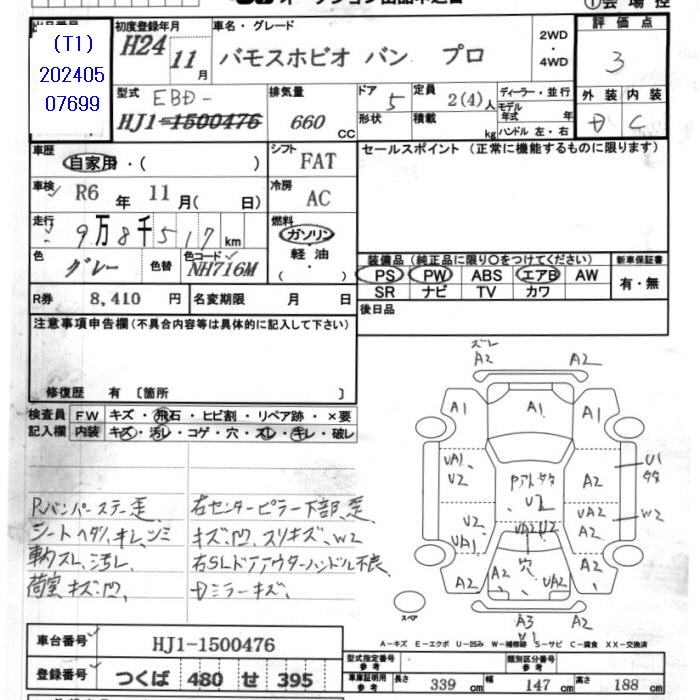 初度登録年月
車名・グレード
評価点
(T1)
202405
07699
H24 11月
バモスホビオ バン プロ
2WD
・
4WD
3
型式
EBD-
HJ1-1500476
排気量
660 CC
ドア
5
形状
定員
2(4)人
積載
kg
ディーラー・並行
モデル年式 年
ハンドル 左・右
外装
内装
D
C
車歴
自家用・( )
シフト
FAT
セールスポイント(正常に機能するものに限ります)
車検
R6 年 11 月( 日)
冷房
AC
走行
9万8千517 km
燃料
ガソリン
軽油
・( )
色
グレー
色替
色コード
NH716M
装備品(純正品に限り○をつけてください)
新車保証書
PS PW ABS エアB AW
SR ナビ TV カワ
有・無
R券 8,410 円
名変期限 月 日
後日品
注意事項申告欄(不具合内容等は具体的に記入して下さい)
修復歴 有 〔箇所 〕
検査員
記入欄
FW キズ・飛石・ヒビ割・リペア跡・×要
内装 キズ・汚レ・コゲ・穴・スレ・キレ・破レ
Rバンパーステー歪、
シートヘタリ、キレ、シミ
汚レ、
荷室キズ凹、
右センターピラー下部、歪、
キズ凹、スリキズ、W2
右SLドアアウターハンドル不良
Dミラーキズ、
ズレ
A2 A2
A1 A1 A1
UA1
U2
Pアトタタ
U2
A2
U1
タタ
U2
UA1
UA2U2
UA2
A2
W2
A2
穴
A2 UA2
A2
スペア
A3
U1
A2
A-キズ E-エクボ U-凹み W-補修跡 S-サビ C-腐食 XX-交換済
車台番号 HJ1-1500476
登録番号 つくば 480 せ 395
型式指定番号
参考
類別区分番号
参考
車庫証明用
参考
長さ 339 cm
幅 147 cm
高さ 188 cm